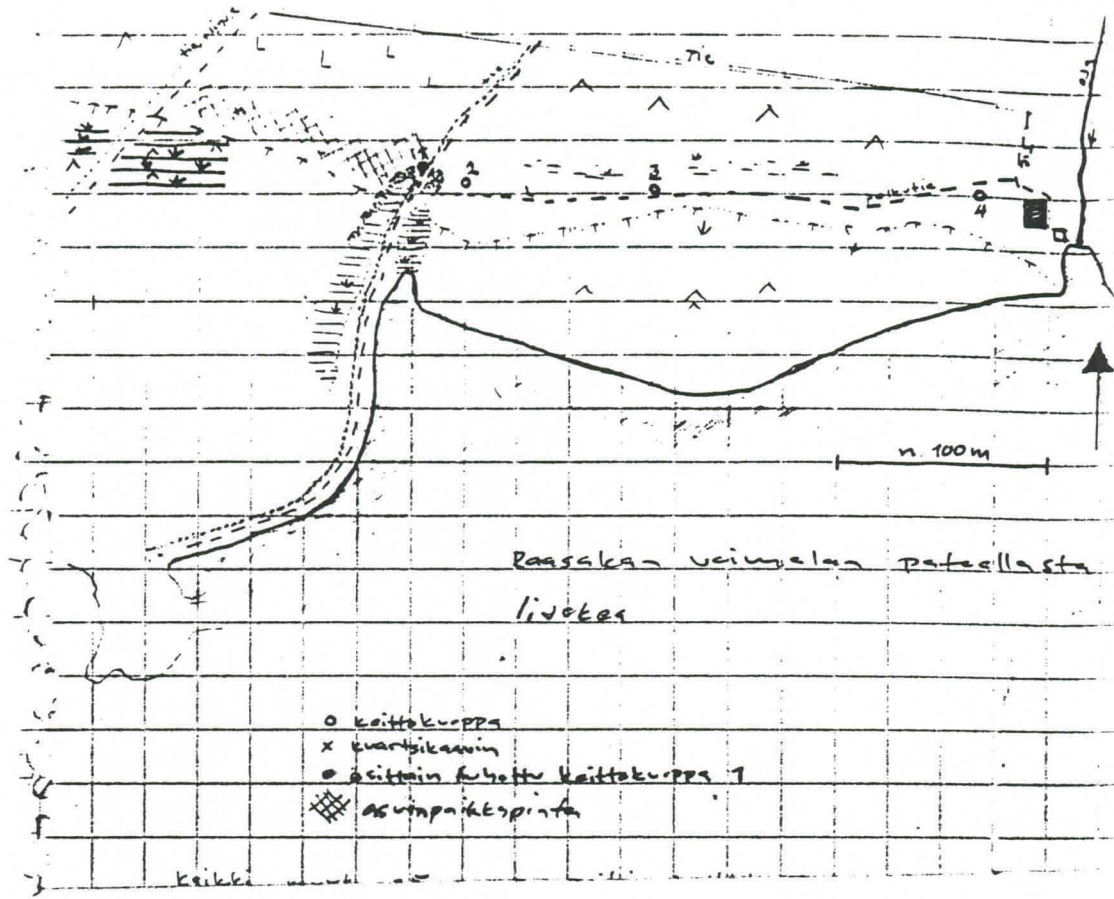 tie
oja
2
3
4
polkutie
n. 100 m
Raasakan voimalan patoallasta
livokea
o keittokuoppa
x kvartsikaavin
● osittain tuhottu keittokuoppa 1
asuinpaikkapinta
kaikki